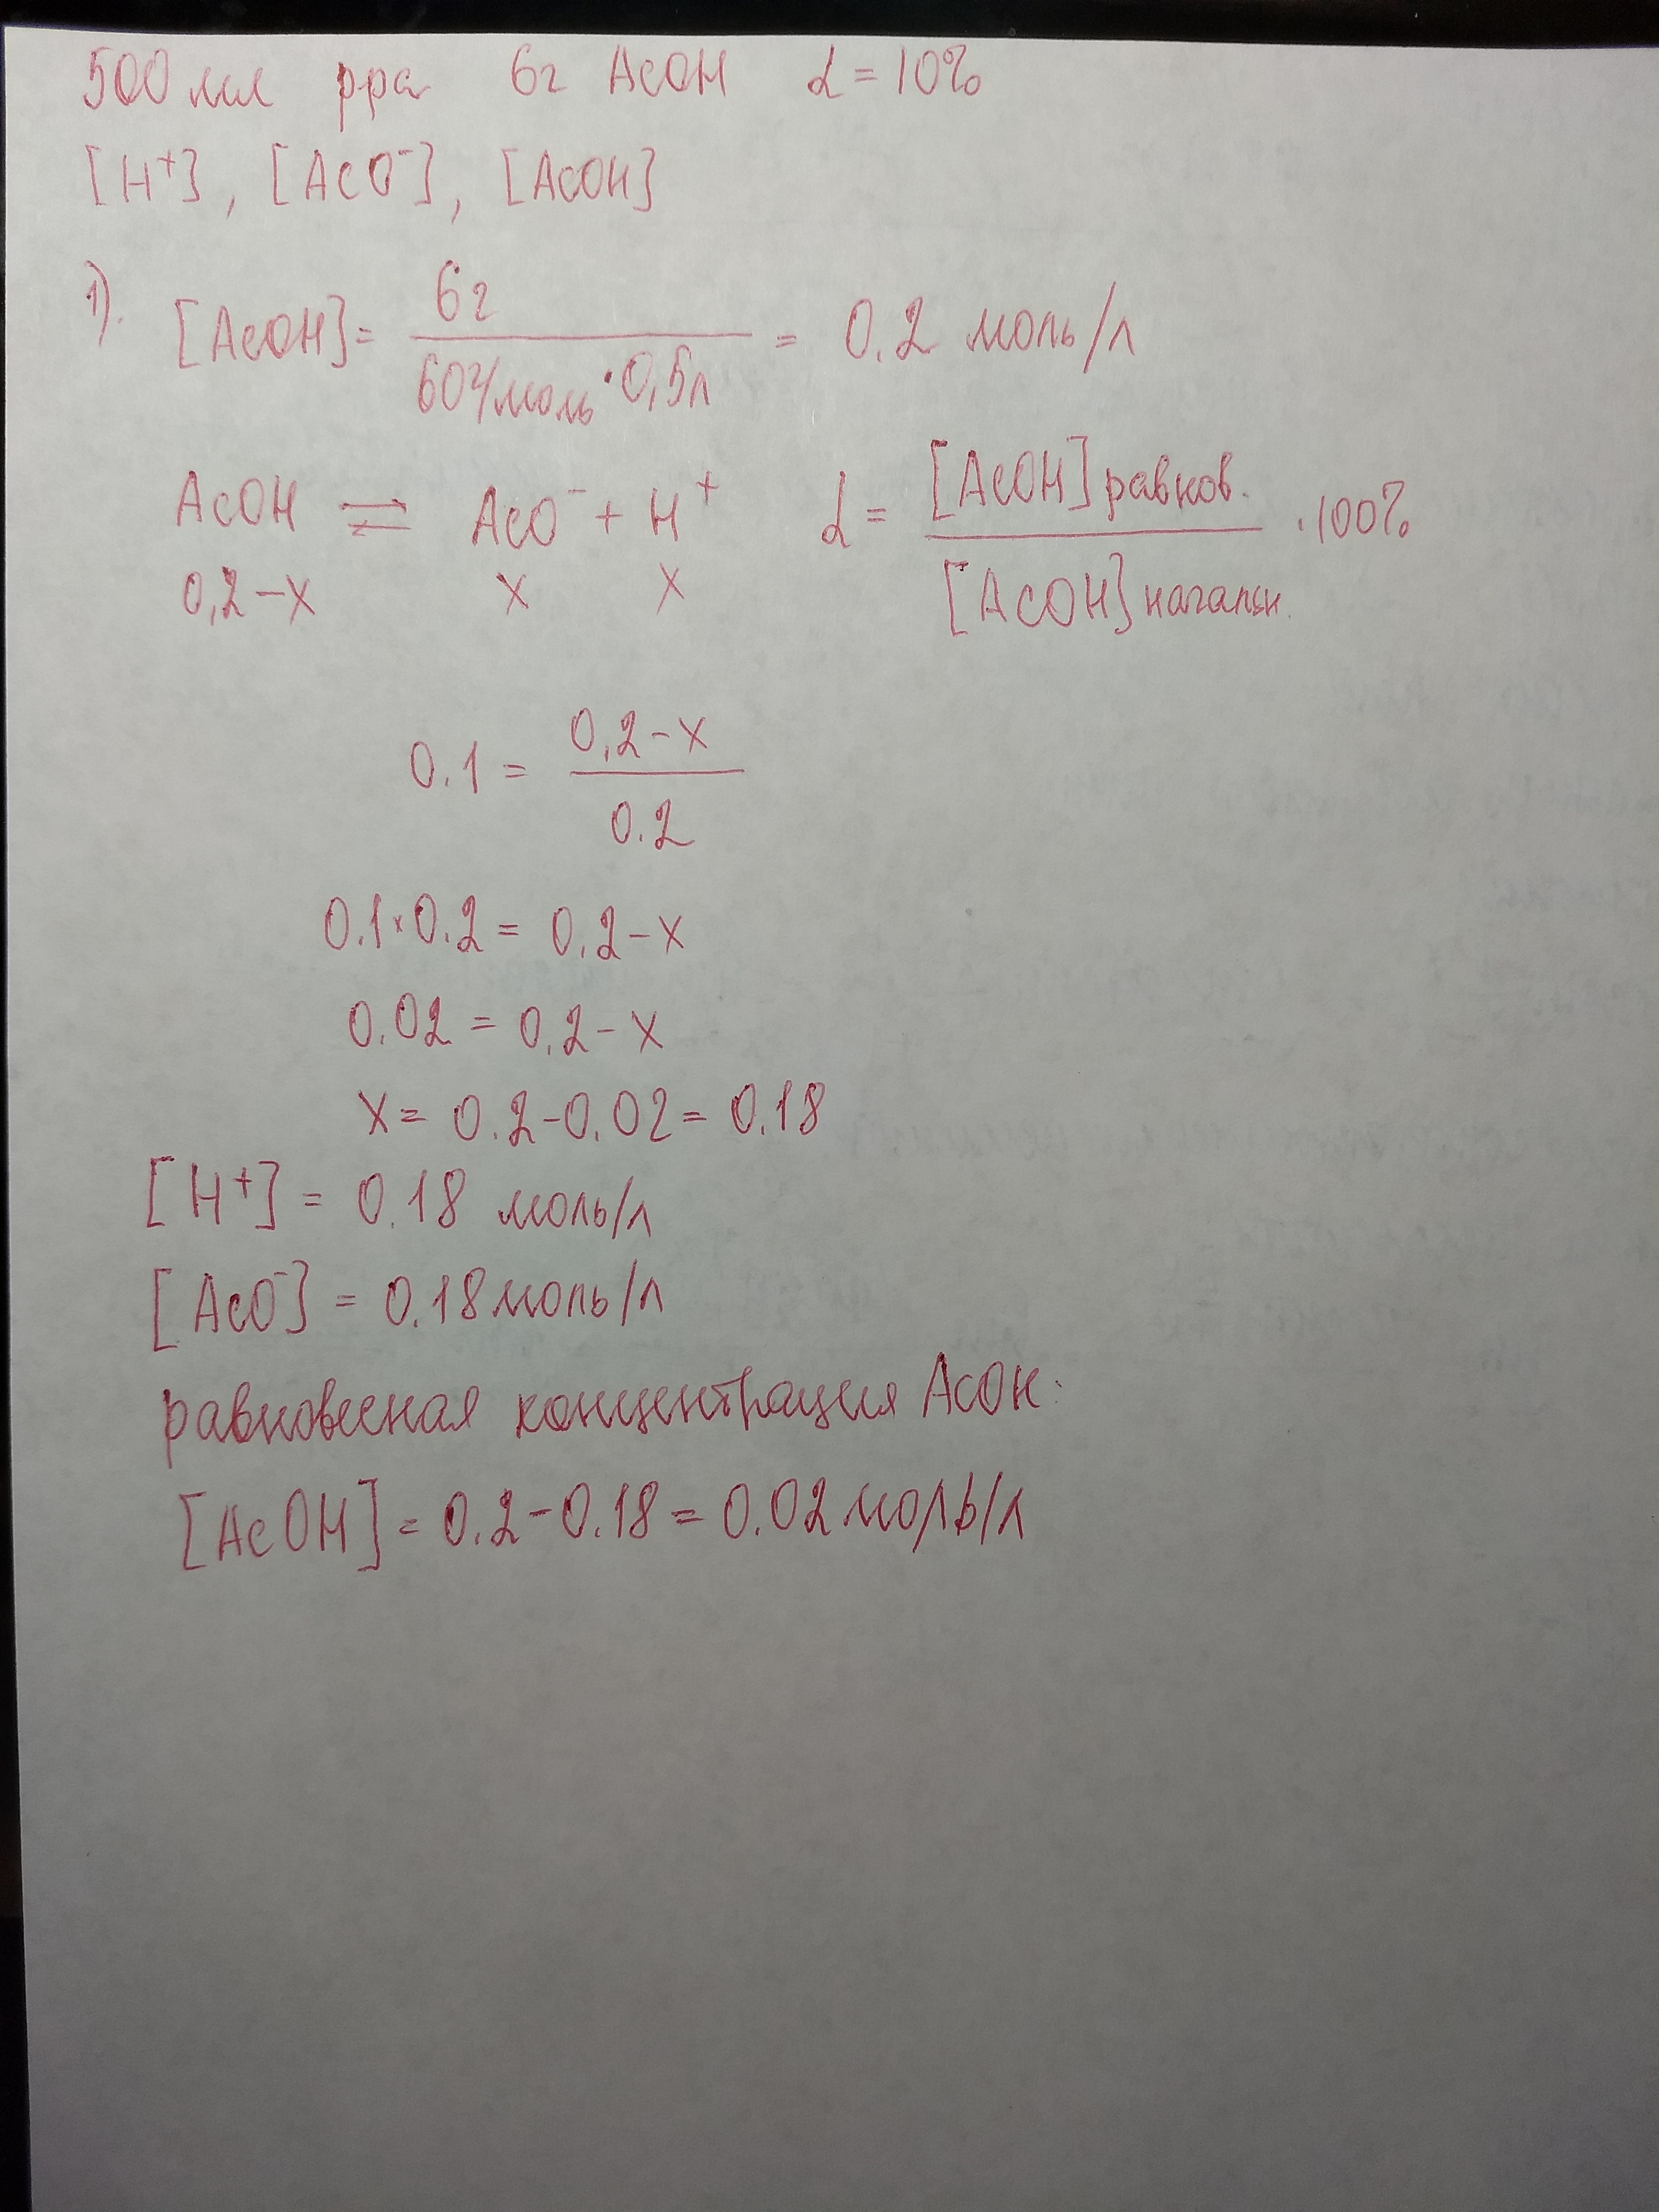 500 мл рра 6г AcOH α = 10%
[H⁺], [AcO⁻], [AcOH]
1). [AcOH] = 6г / 60г/моль · 0,5л = 0.2 моль/л
AcOH ⇌ AcO⁻ + H⁺ α = [AcOH] равнов. / [AcOH] начальн. · 100%
0,2 - x x x
0.1 = 0,2 - x / 0.2
0.1 × 0.2 = 0,2 - x
0.02 = 0,2 - x
x = 0.2 - 0.02 = 0.18
[H⁺] = 0.18 моль/л
[AcO⁻] = 0.18 моль/л
равновесная концентрация AcOH:
[AcOH] = 0.2 - 0.18 = 0.02 моль/л